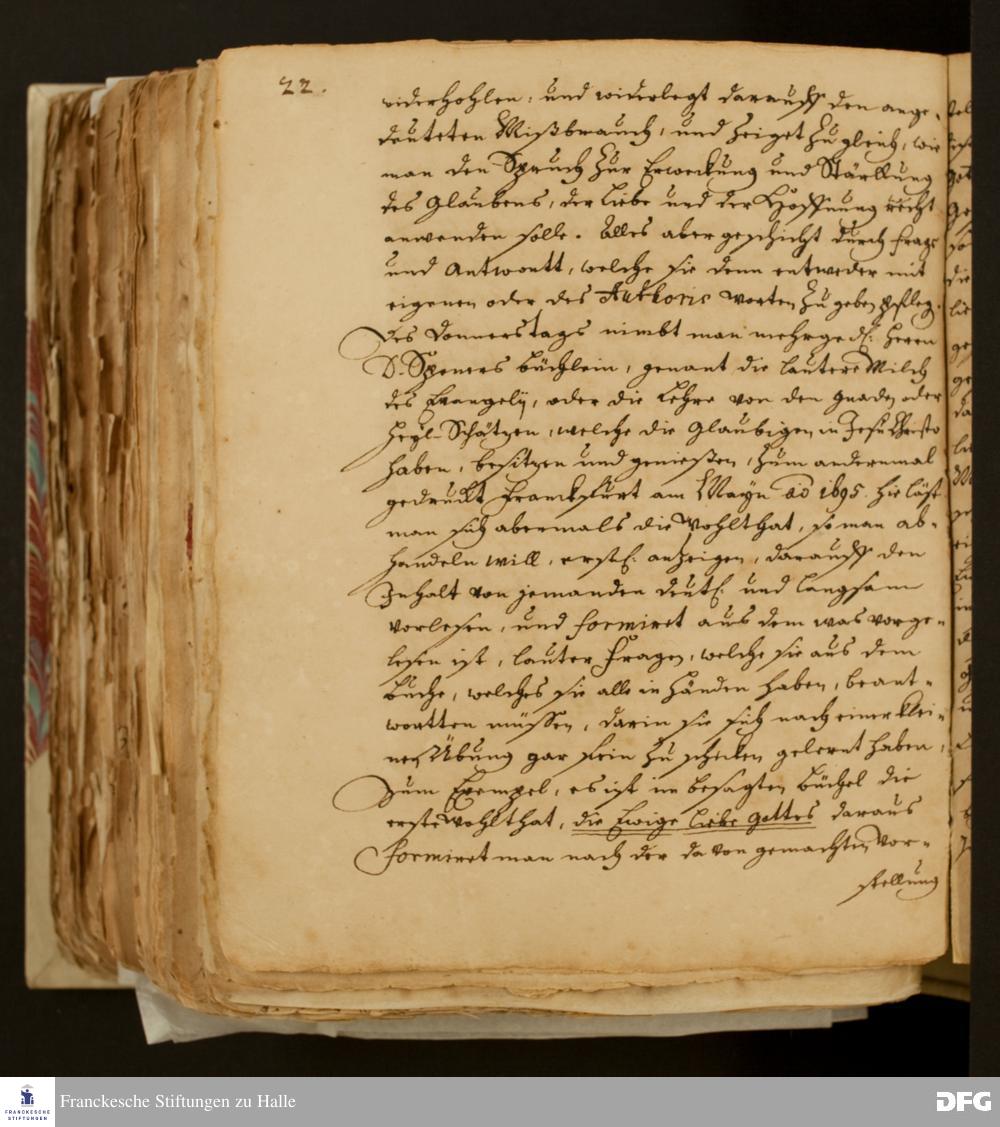 22.
widerhohlen, und widerlegt darauff den ange-
deuteten Mißbrauch, und zeiget zu gleich, wie
man den Spruch zur Erweckung und Stärckung
des Glaubens, der Liebe und der Hoffnung recht
anwenden solle. Alles aber geschicht durch frag
und Antwortt, welche sie denn entweder mit
eigenen oder des Authoris worten zu geben pfleg.
Des Donnerstags nimbt man mehrged. Herrn
D. Speners büchlein, genant die lautere Milch
des Evangelij, oder die Lehre von den gnaden oder
Heyl-Schätzen, welche die Glaubigen in Jesu Christo
haben, besitzen und genießen, zum andernmal
gedruckt Franckfurt am Mayn ao 1695. hie läst
man sich abermals die Wohlthat, so man ab-
handeln will, erstl. anzeigen, darauff den
Inhalt von jemanden deutl. und langsam
vorlesen, und formiret aus dem was vorge-
lesen ist, lauter Fragen, welche sie aus dem
buche, welches sie alle in händen haben, beant-
wortten müssen, darin sie sich nach einer klei-
nen Übung gar fein zu schicken gelernt haben,
Zum Exempel, es ist in besagten büchel die
erste Wohlthat, die Ewige Liebe Gottes daraus
formiret man nach der davon gemachten Vor-
stellung
Franckesche Stiftungen zu Halle
FRANCKESCHE
STIFTUNGEN
DFG